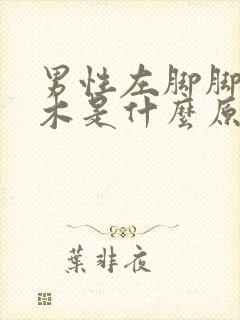 男性左脚脚
木是什麼原
葉非夜